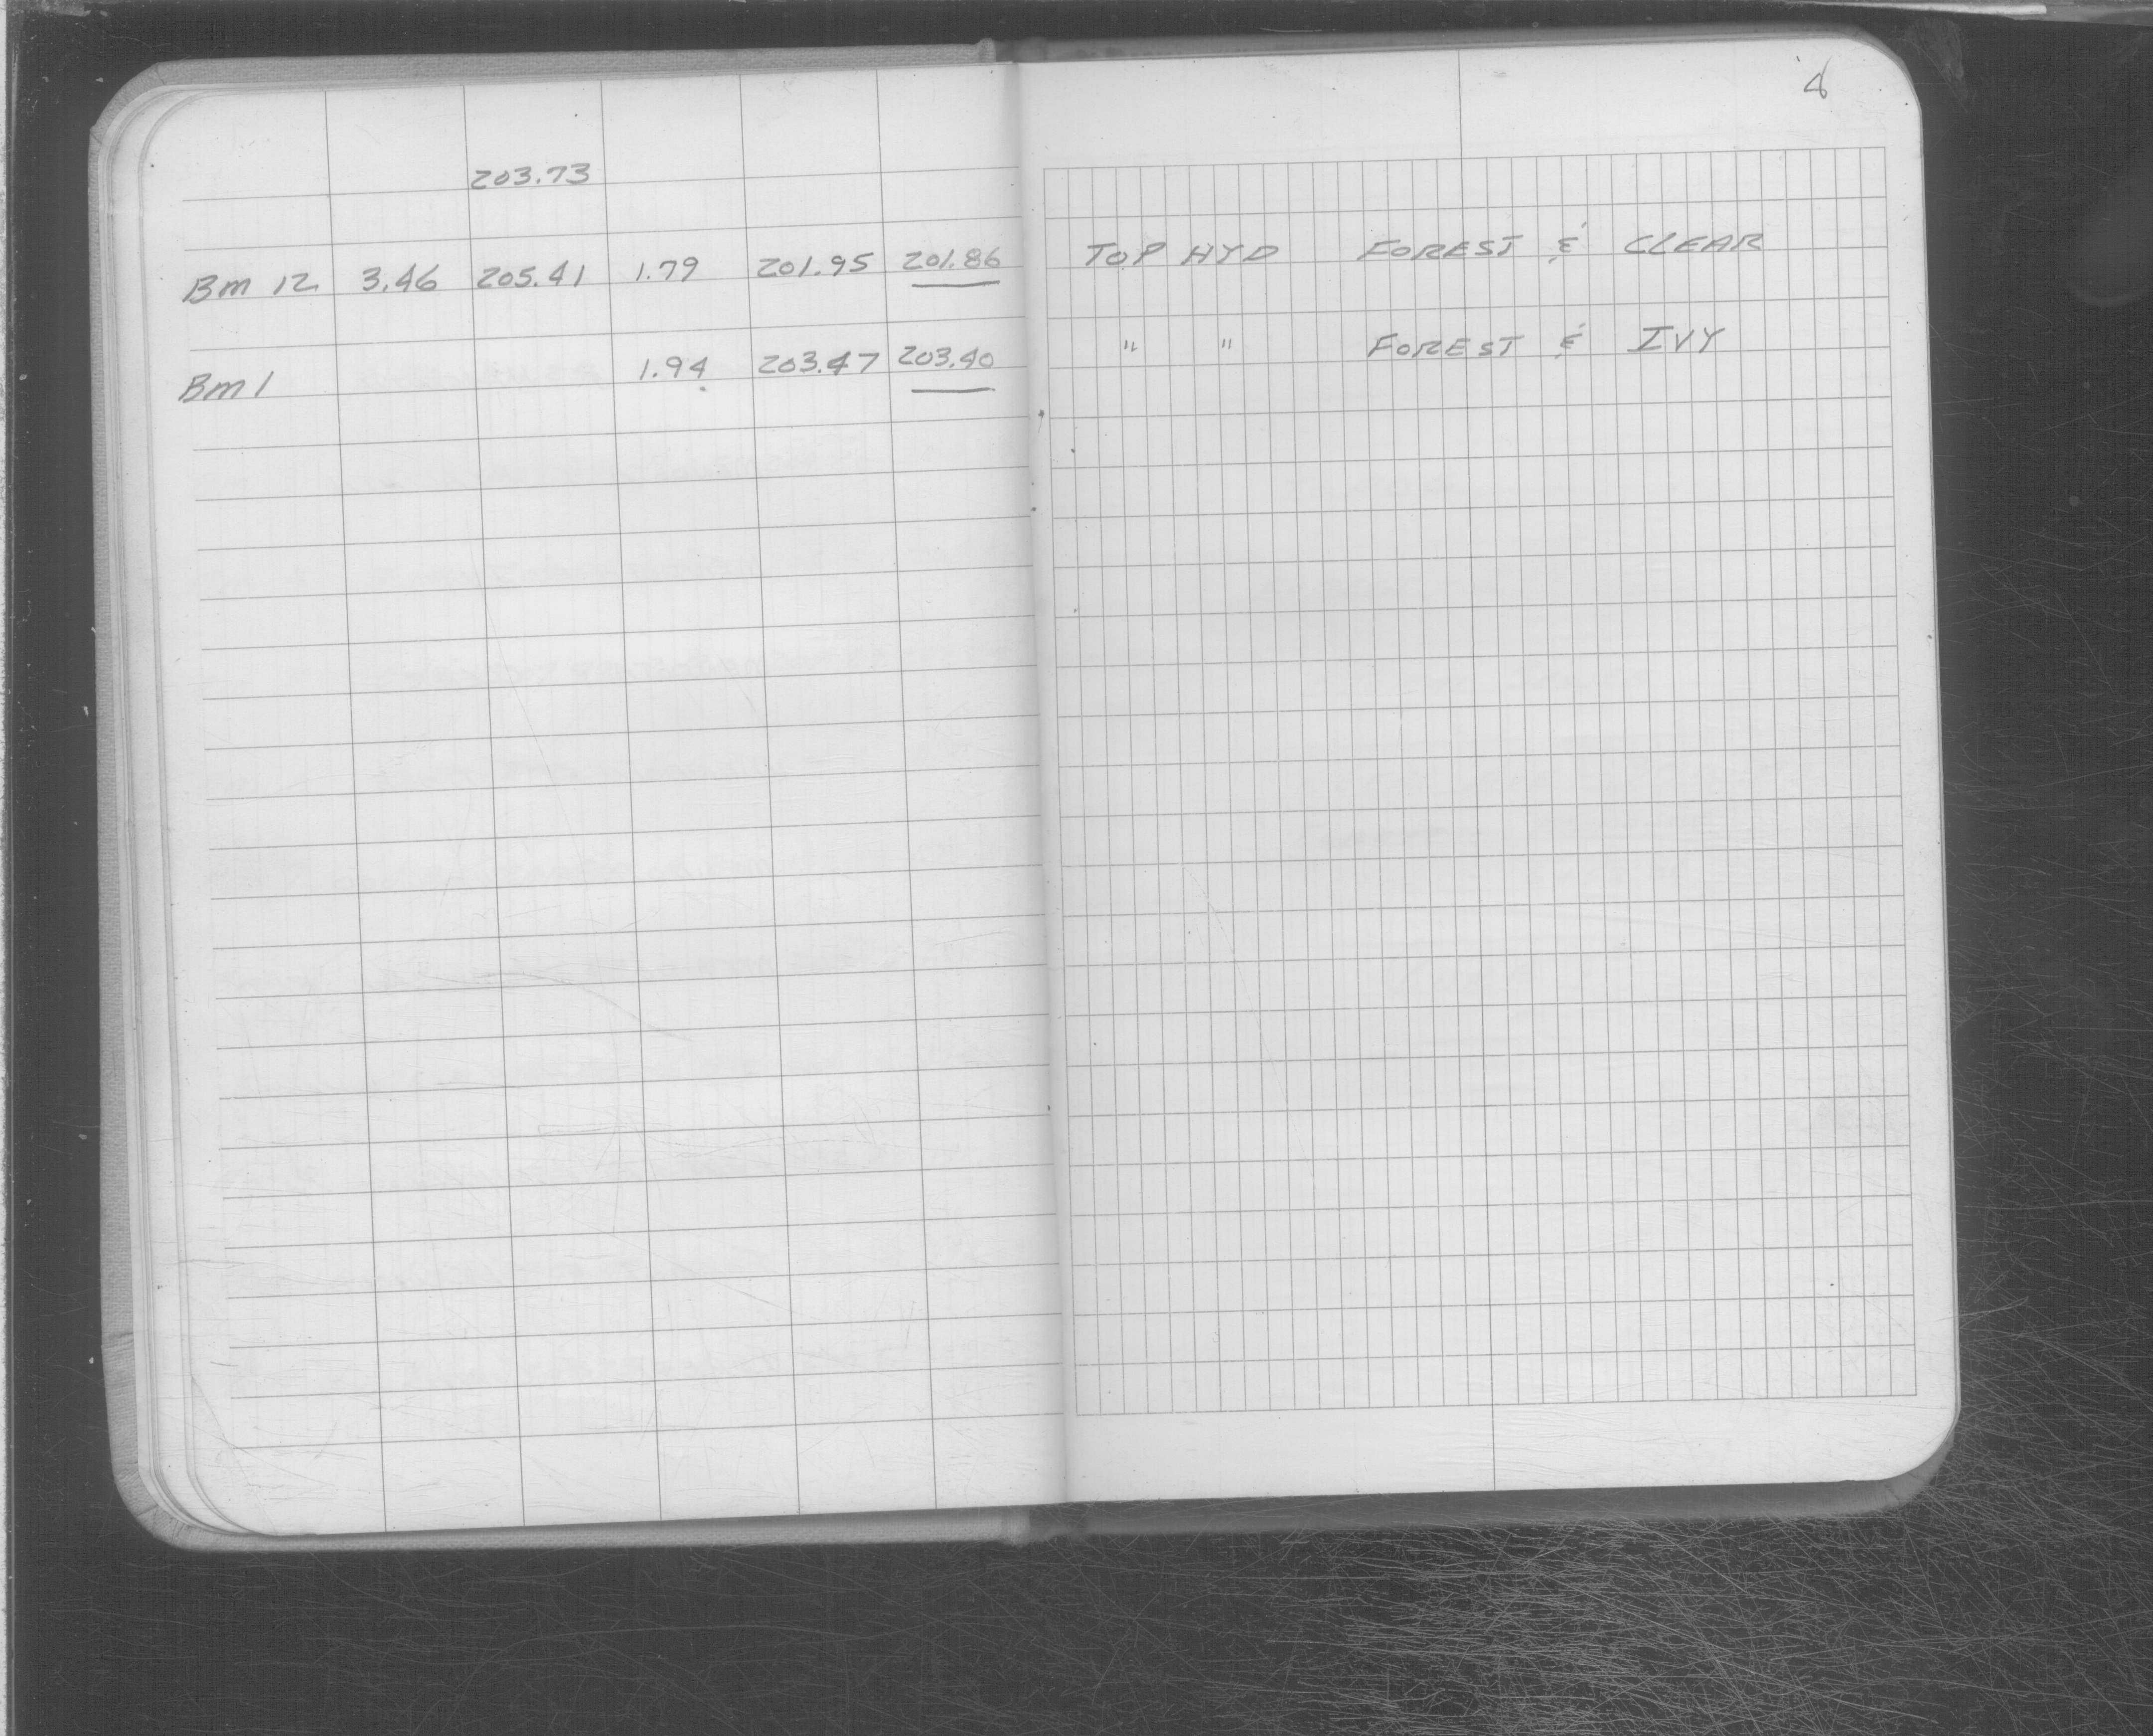 4
203.73
Bm 12 3.46 205.41 1.79 201.95 201.86 TOP HYD FOREST & CLEAR
Bm 1 1.94 203.47 203.40 " " FOREST & IVY